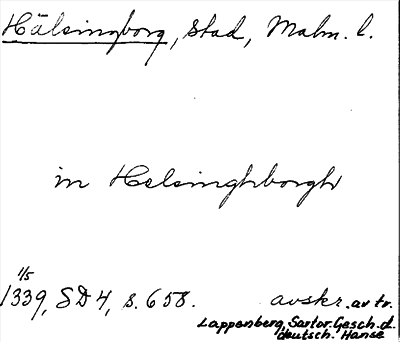 Hälsingborg, stad, Malm. l.
in Helsinghborgh
1/5
1339, SD 4, s. 658. avskr. av tr.
Lappenberg, Sartor. Gesch. d.
deutsch. Hanse